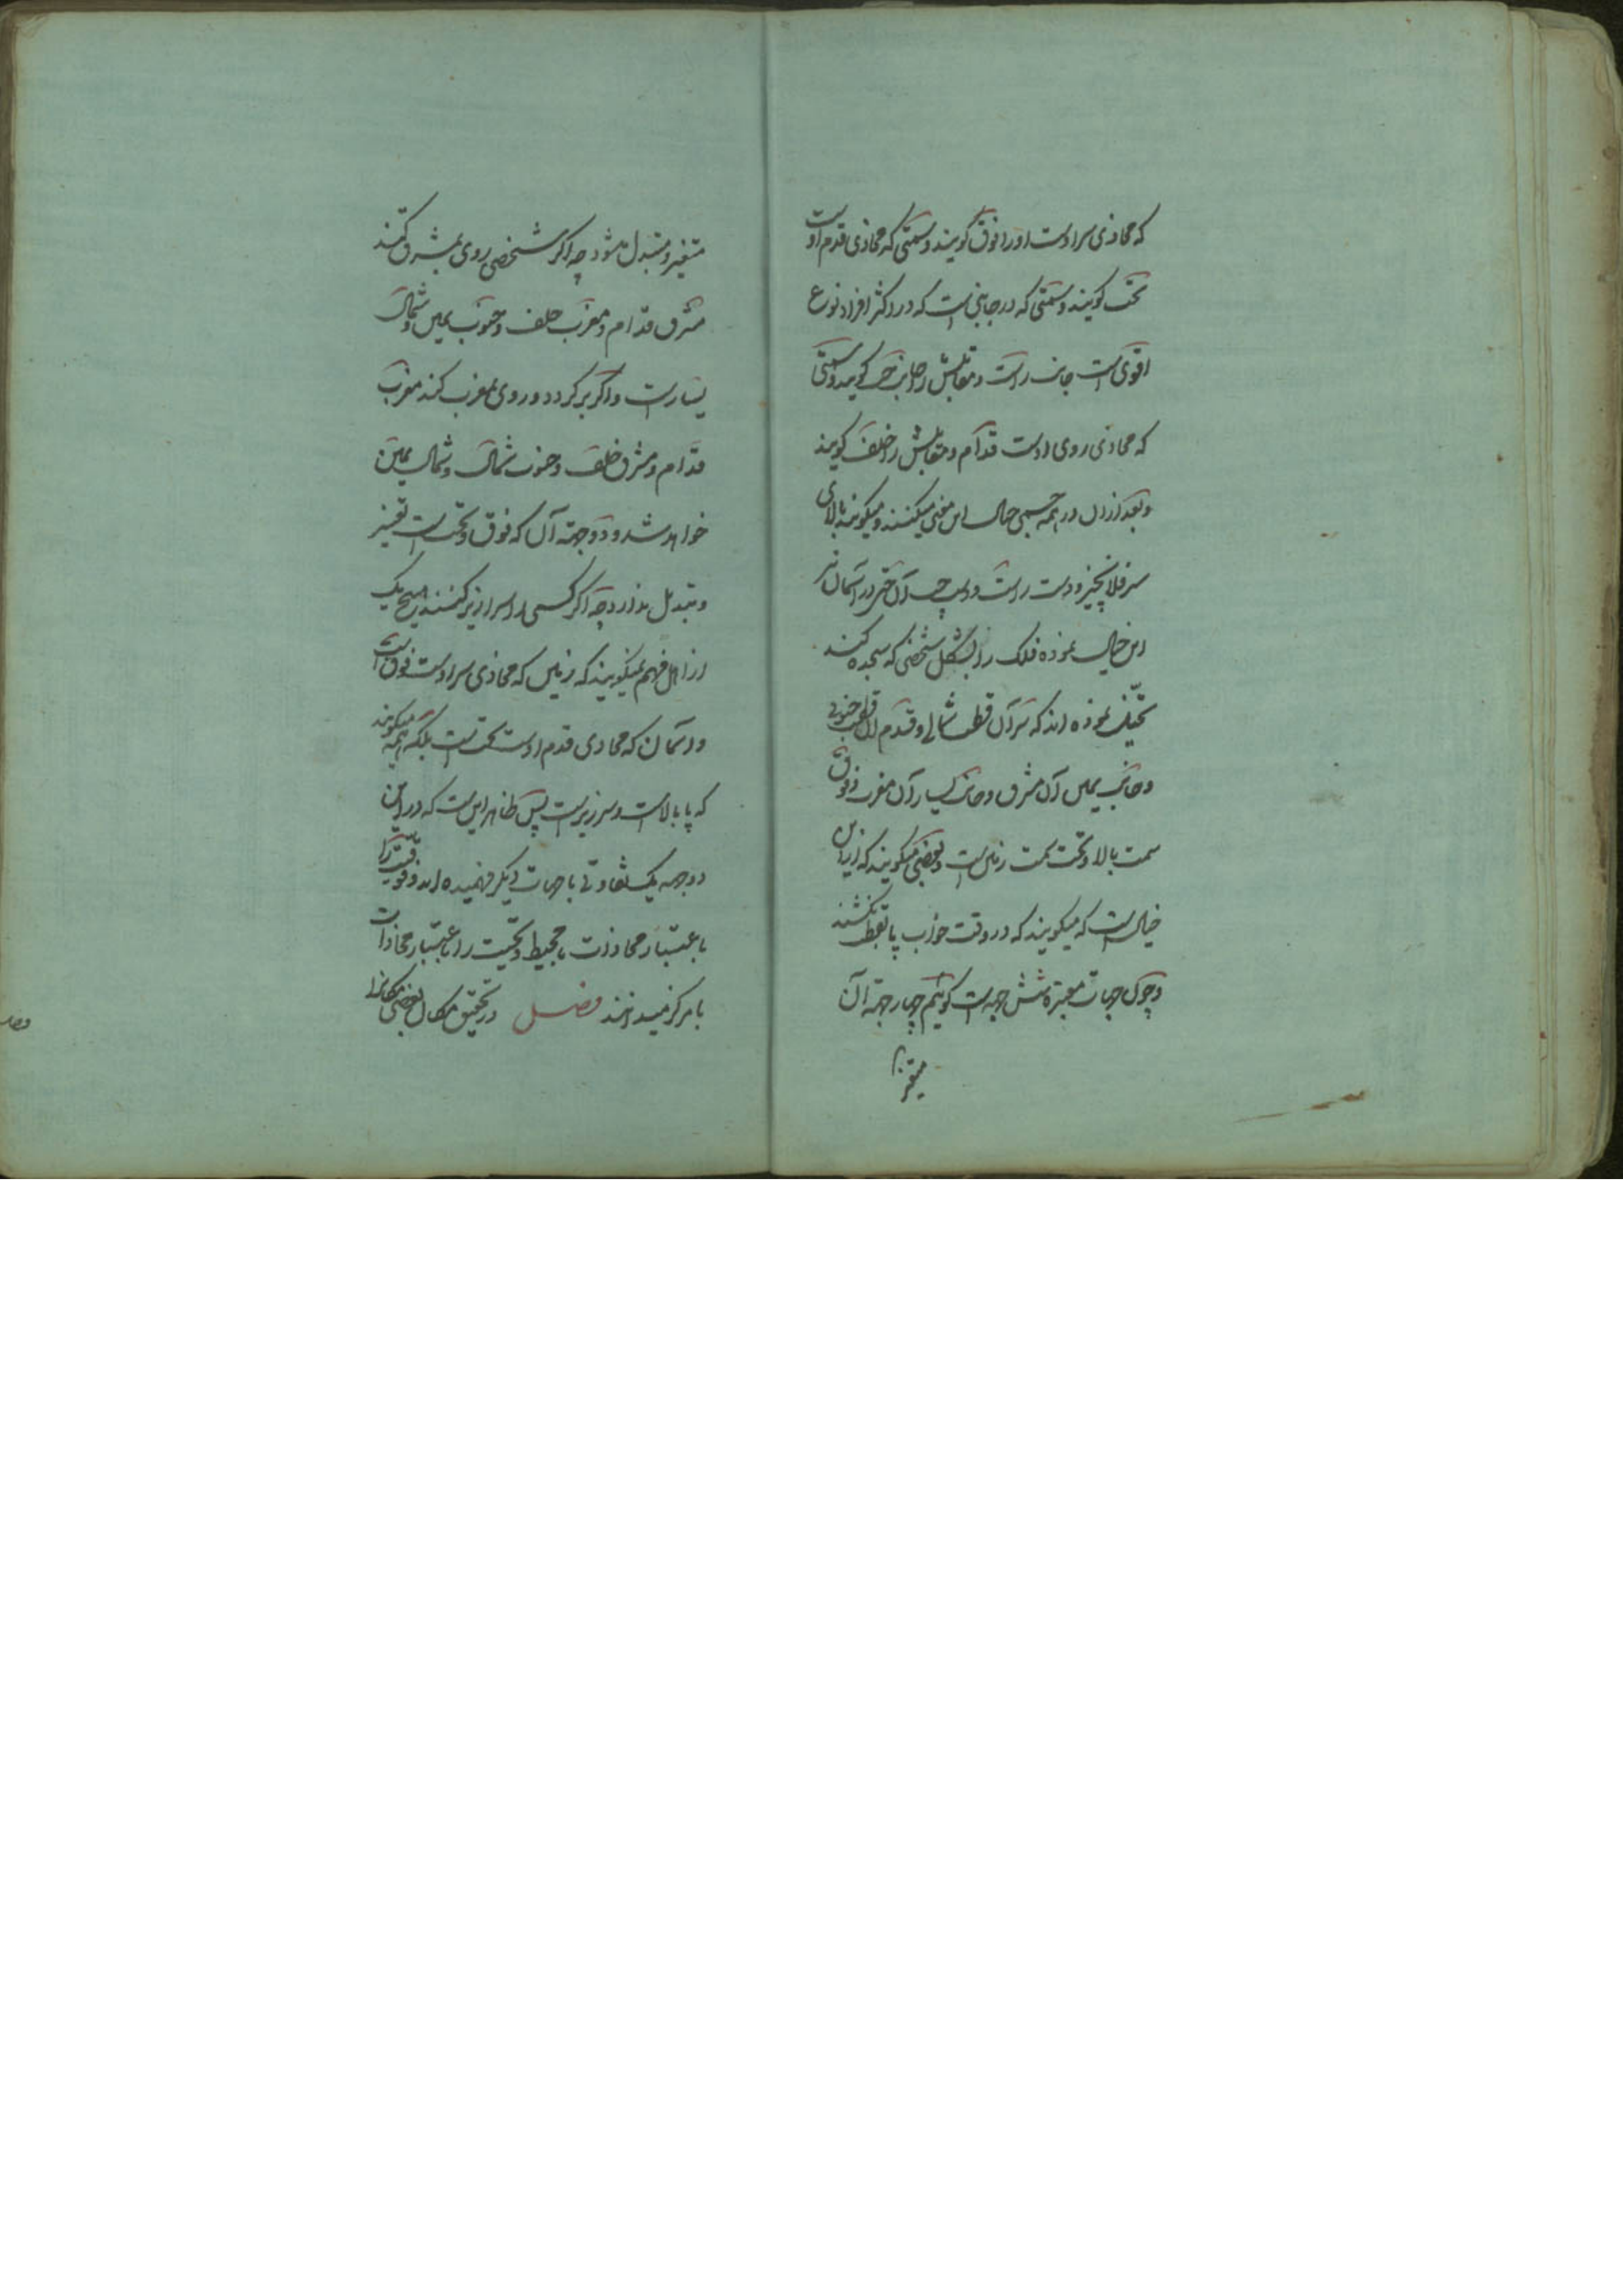 که محاذی سر اوست او را فوق گویند و سمتی که محاذی قدم اوست
تحت گویند و سمتی که در جانبی است که در اکثر افراد نوع
اقوی است جانب راست و مقابلش را جانب چپ گویند و سمتی
که محاذی روی اوست قدام و مقابلش را خلف گویند
و بعد از آن در همه جسمی خیال این معنی میکنند و میگویند بالای
سر فلان چیز و دست راست و دست چپ آن حتی در آسمان نیز
این خیال نموده فلک را بشکل شخصی که سجده کند
تخیل نموده اند که سر آن قطب شمالی و قدم آن قطب جنوبی
و جانب یمین آن مشرق و جانب یسار آن مغرب و فوق
سمت بالا و تحت سمت زمین است و بعضی میگویند که از این
خیال است که میگویند که در وقت خواب پا بقطب نکشند
و چون جهات معتبره شش جهت است گوئیم چهار جهة آن
متغیر
متغیر و متبدل میشود چه اگر شخصی روی بمشرق کند
مشرق قدام و مغرب خلف و جنوب یمین و شمال
یسار است و اگر بر گردد و روی بمغرب کند مغرب
قدام و مشرق خلف و جنوب شمال و شمال یمین
خواهد شد و دو جهة آن که فوق و تحت است تغییر
و تبدیل ندارد چه اگر کسی را سرازیر کنند هیچ یک
از اهل فهم نمیگویند که زمین که محاذی سر اوست فوق است
و آسمان که محاذی قدم اوست تحت است بلکه همه میگویند
که پا بالاست و سر زیر است پس ظاهر این است که در این
دو جهه یک تفاوتی با جهات دیگر فهمیده اند و فوقیت را
باعتبار محاذات با محیط و تحتیت را باعتبار محاذات
با مرکز میدانند فصل در تحقیق مکان بعضی مکانرا